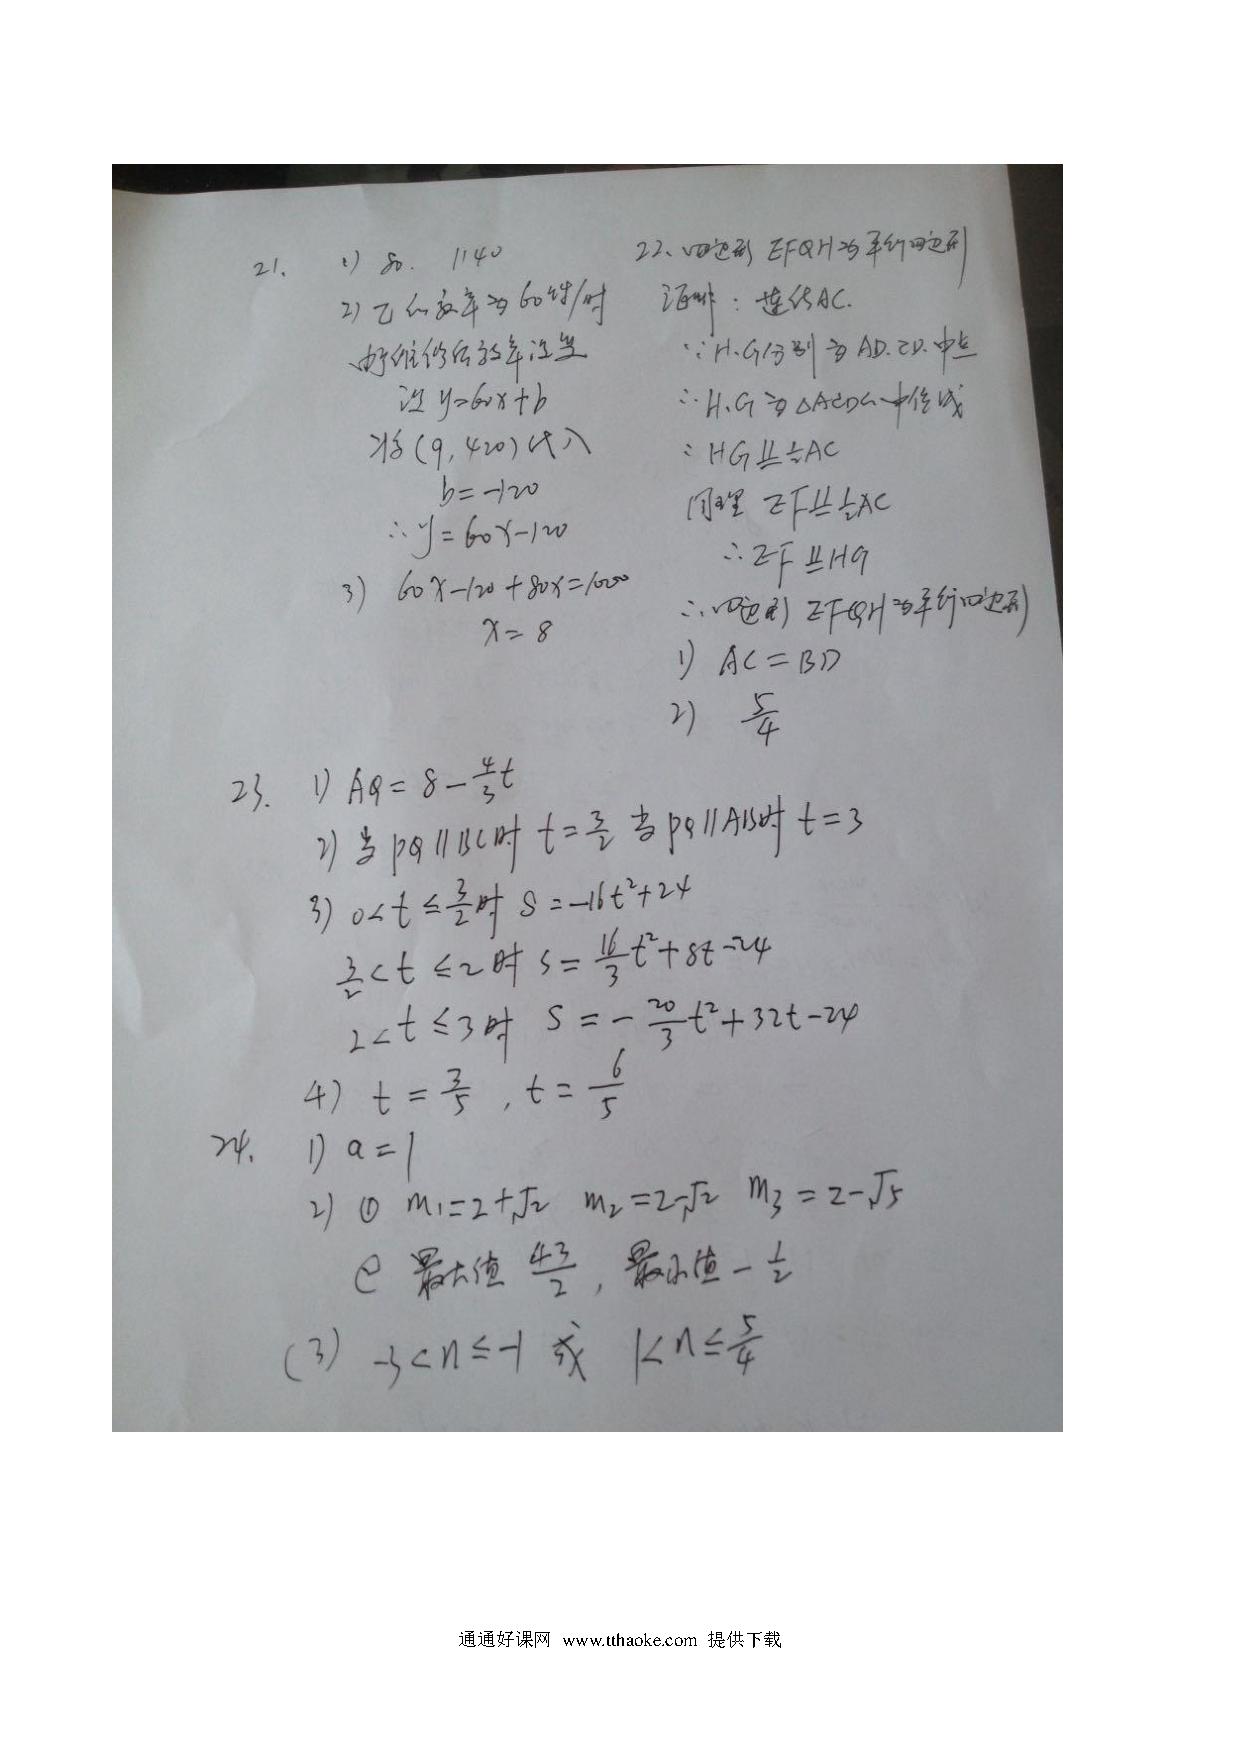 21. 1) 80. 1140
2) 乙的效率为60件/时
由于维修后效率没变
设 y=60x+b
将(9,420)代入
b=-120
∴y=60x-120
3) 60x-120+80x=1000
x=8
22、四边形EFGH为平行四边形
证明：连结AC.
∵H.G分别为AD.CD.中点
∴H.G为△ACD的中位线
∴HG∥=½AC
同理 EF∥=½AC
∴EF∥=HG
∴四边形EFGH为平行四边形
1) AC=BD
2) 5/4
23. 1) AQ=8-4/3t
2) 当PQ∥BC时 t=3/2 当PQ∥AB时 t=3
3) 0<t≤3/2时 S=-16t²+24
3/2<t≤2时 S=16/3t²+8t-24
2<t≤3时 S=-20/3t²+32t-24
4) t=3/5, t=6/5
24. 1) a=1
2) ① m₁=2+√2 m₂=2-√2 m₃=2-√5
② 最大值 43/2, 最小值 -1/2
(3) -3<n≤-1 或 1<n≤5/4
通通好课网 www.tthaoke.com 提供下载